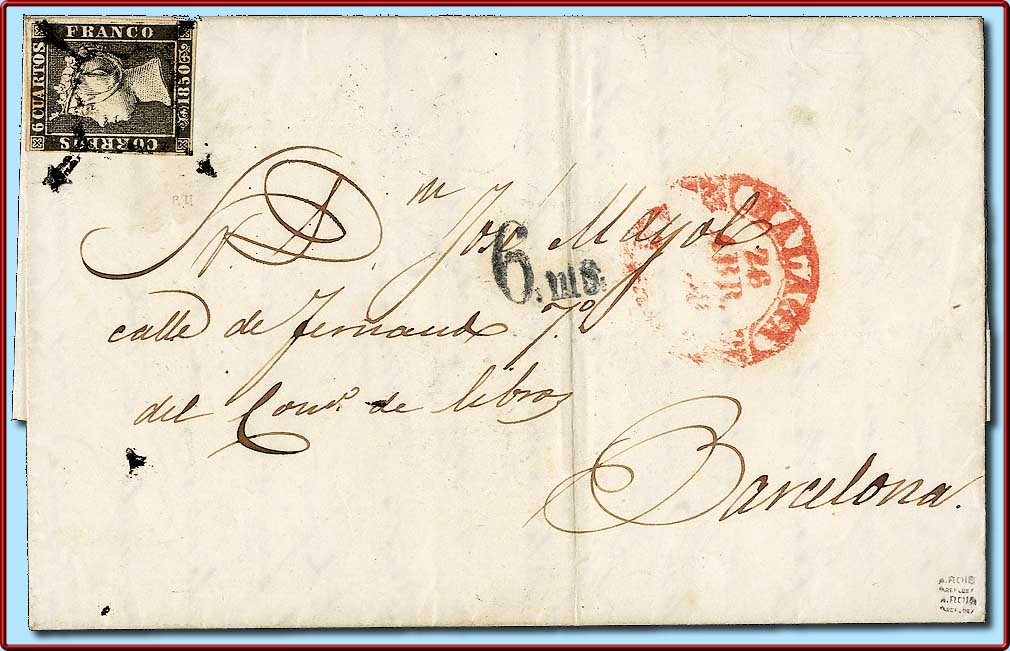 FRANCO
6 CUARTOS
1850
CORREOS
Sr. Dn. José Mayol.
6. ms.
MALAGA
26
ABR
calle de Fernando 7º
del Comº. de libros
Barcelona.
A. ROIG
A. ROIG